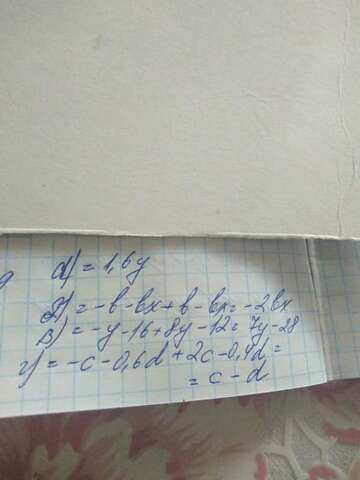 а) = 1,6y
б) = -в-вх+в-вх=-2вх
в) = -y-16+8y-12= 7y-28
г) = -c-0,6d+2c-0,4d=
= c-d